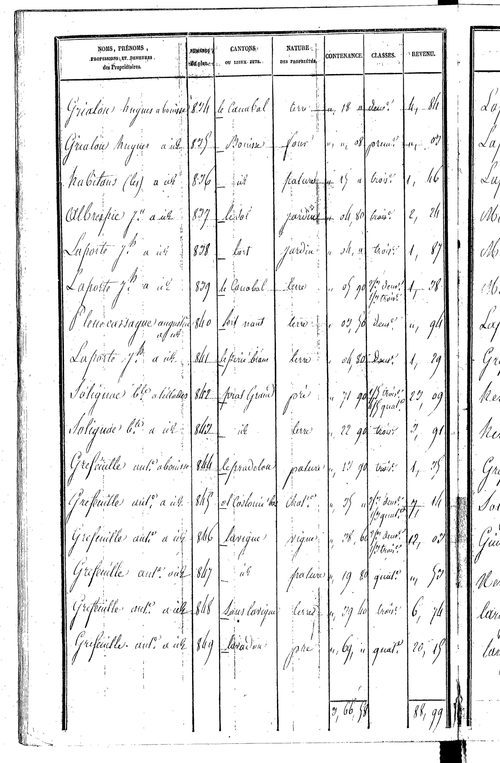 NOMS, PRÉNOMS, PROFESSIONS, ET DEMEURES des Propriétaires. NUMÉROS du plan. CANTONS OU LIEUX-DITS. NATURE DES PROPRIÉTÉS. CONTENANCE. CLASSES. REVENU.
Grialou hugues a bouisse 834 le Canabal terre „ 18 „ deux.e 4, 84
Grialou hugues a id. 835 Bouisse four „ „ 08 prem.e „ 03
habitans (les) a id. 836 id. pature „ 25 „ trois.e 1, 46
Albrespic j.n a id. 837 jardin „ 04 80 trois.e 2, 24
Laporte j.h a id. 838 l'ort jardin „ 04 „ trois.e 1, 87
Laporte j.h a id. 839 le Canabal terre „ 05 90 deux.e trois.e 1, 38
augustin 840 terre „ 03 50 deux.e „ 94
Laporte j.h a id. 841 terre „ 04 80 deux.e 1, 29
Solignac 842 prat Grand pré „ 71 90 trois.e quat.e 23, 09
Solignac a id. 843 id. terre „ 22 90 trois.e 3, 91
Grefeuille ant.e a bouisse 844 le pradelou pature „ 13 90 trois.e 1, 35
Grefeuille ant.e a id. 845 „ 35 „ deux.e quat.e 7, 14
Grefeuille ant.e a id. 846 lavigne vigne „ 38 60 deux.e trois.e 12, 03
Grefeuille ant.e a id. 847 id. pature „ 19 80 quat.e „ 53
Grefeuille ant.e a id. 848 sous lavigne terre „ 39 40 trois.e 6, 74
Grefeuille ant.e a id. 849 pré „ 69 „ quat.e 20, 15
3, 66, 58 88, 99